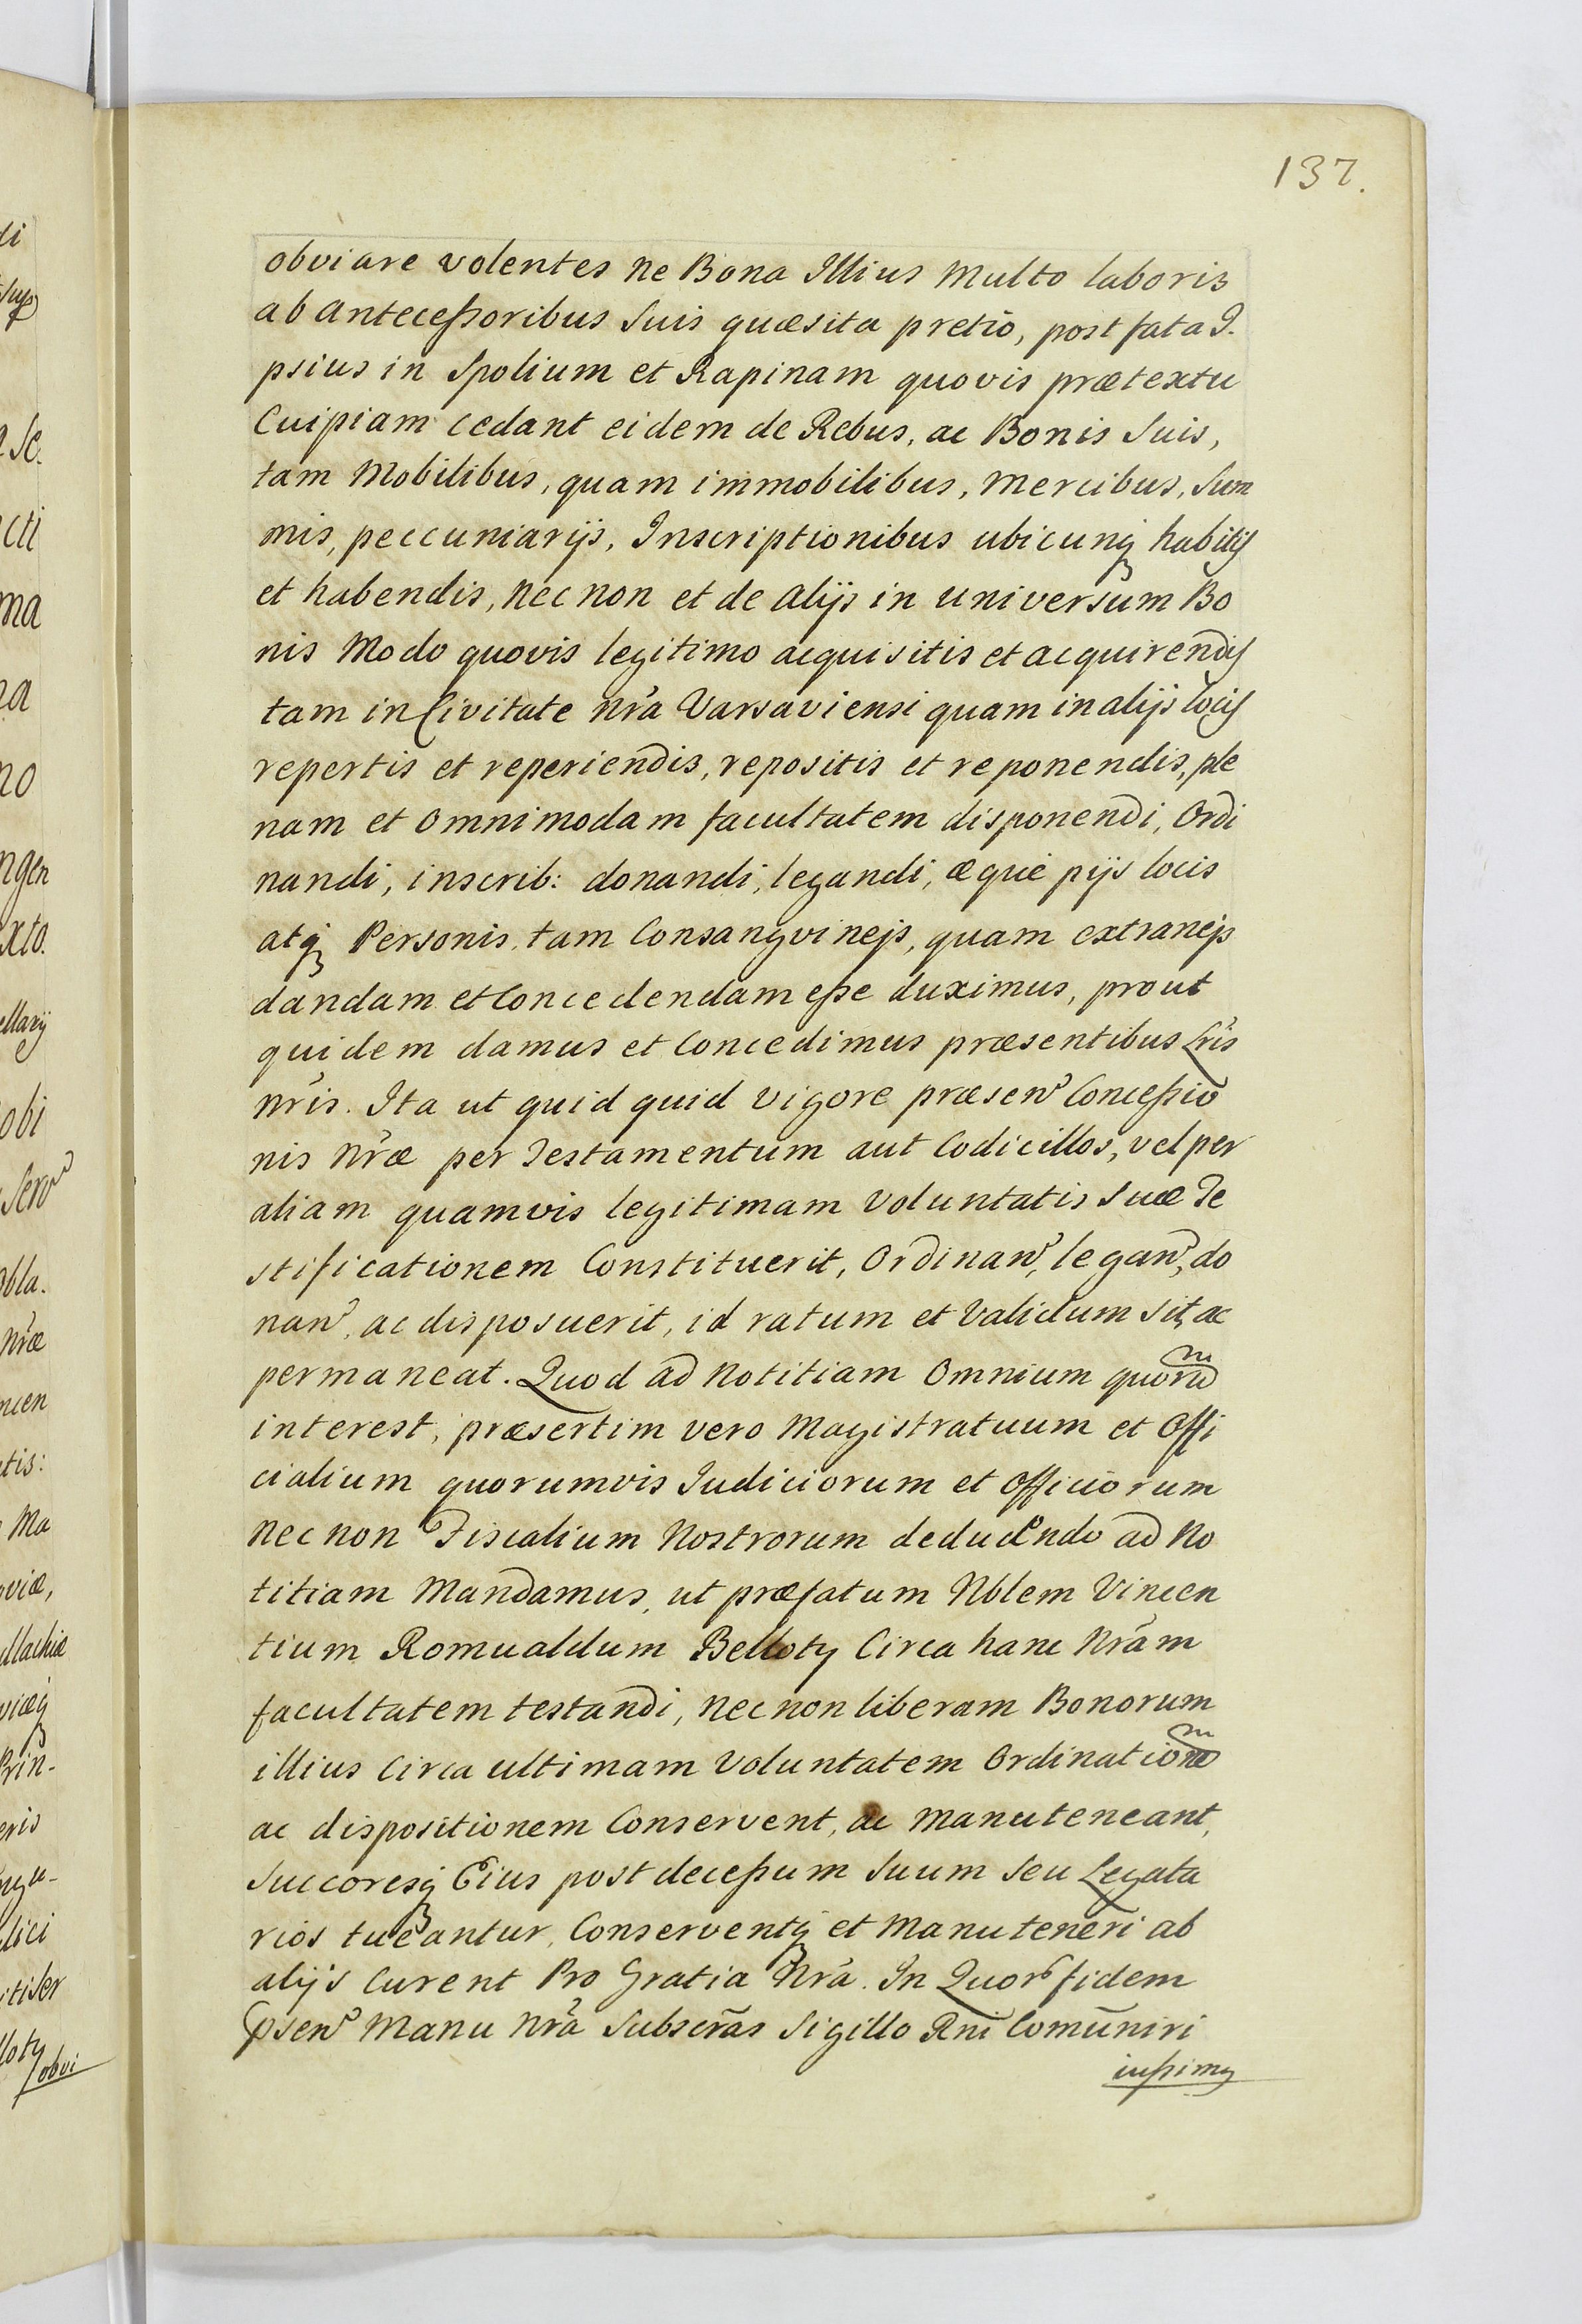 137.
obviare volentes ne Bona Illius Multo laboris
ab antecessoribus Suis quæsita pretio, post fata I.
psius in Spolium et Rapinam quovis prætextu
Cuipiam cedant eidem de Rebus, ac Bonis Suis,
tam Mobilibus, quam immobilibus, Mercibus, Sum
mis, peccuniarijs, Inscriptionibus ubicunq habitis
et habendis, nec non et de alijs in universum Bo
nis Modo quovis legitimo acquisitis et acquirendis
tam in Civitate Nrã Varsaviensi quam in alijs locis
repertis et reperiendis, repositis et reponendis, ple
nam et Omnimodam facultatem disponendi, Ordi
nandi, inscrib: donandi, legandi, æque pijs locis
atq Personis, tam Consangvinejs, quam extranejs
dandam et Concedendam esse duximus, prout
quidem damus et Concedimus præsentibus Lris
Nris. Ita ut quid quid vigore præsen Concessio
nis Nræ per Testamentum aut Codicillos, vel per
aliam quamvis legitimam Voluntatis Suæ Te
stificationem Constituerit, Ordinan, legan, do
nan, ac disposuerit, id ratum et Validum sit, ac
permaneat. Quod ad Notitiam Omnium quorum
interest, præsertim vero Magistratuum et Offi
cialium quorumvis Iudiciorum et Officiorum
Nec non Fiscalium Nostrorum deducendo ad No
titiam Mandamus, ut præfatum Nblem Vincen
tium Romualdum Belloty Circa hanc Nram
facultatem testandi, Nec non liberam Bonorum
illius Circa ultimam Voluntatem Ordinationem
ac dispositionem Conservent, ac Manuteneant,
Succoresq Eius post decessum Suum seu Legata
rios tueantur, Conserventq et Manuteneri ab
alijs Curent Pro Gratia Nra. In Quor fidem
psen Manu Nra Subscras Sigillo Rni Comuniri
iussimq